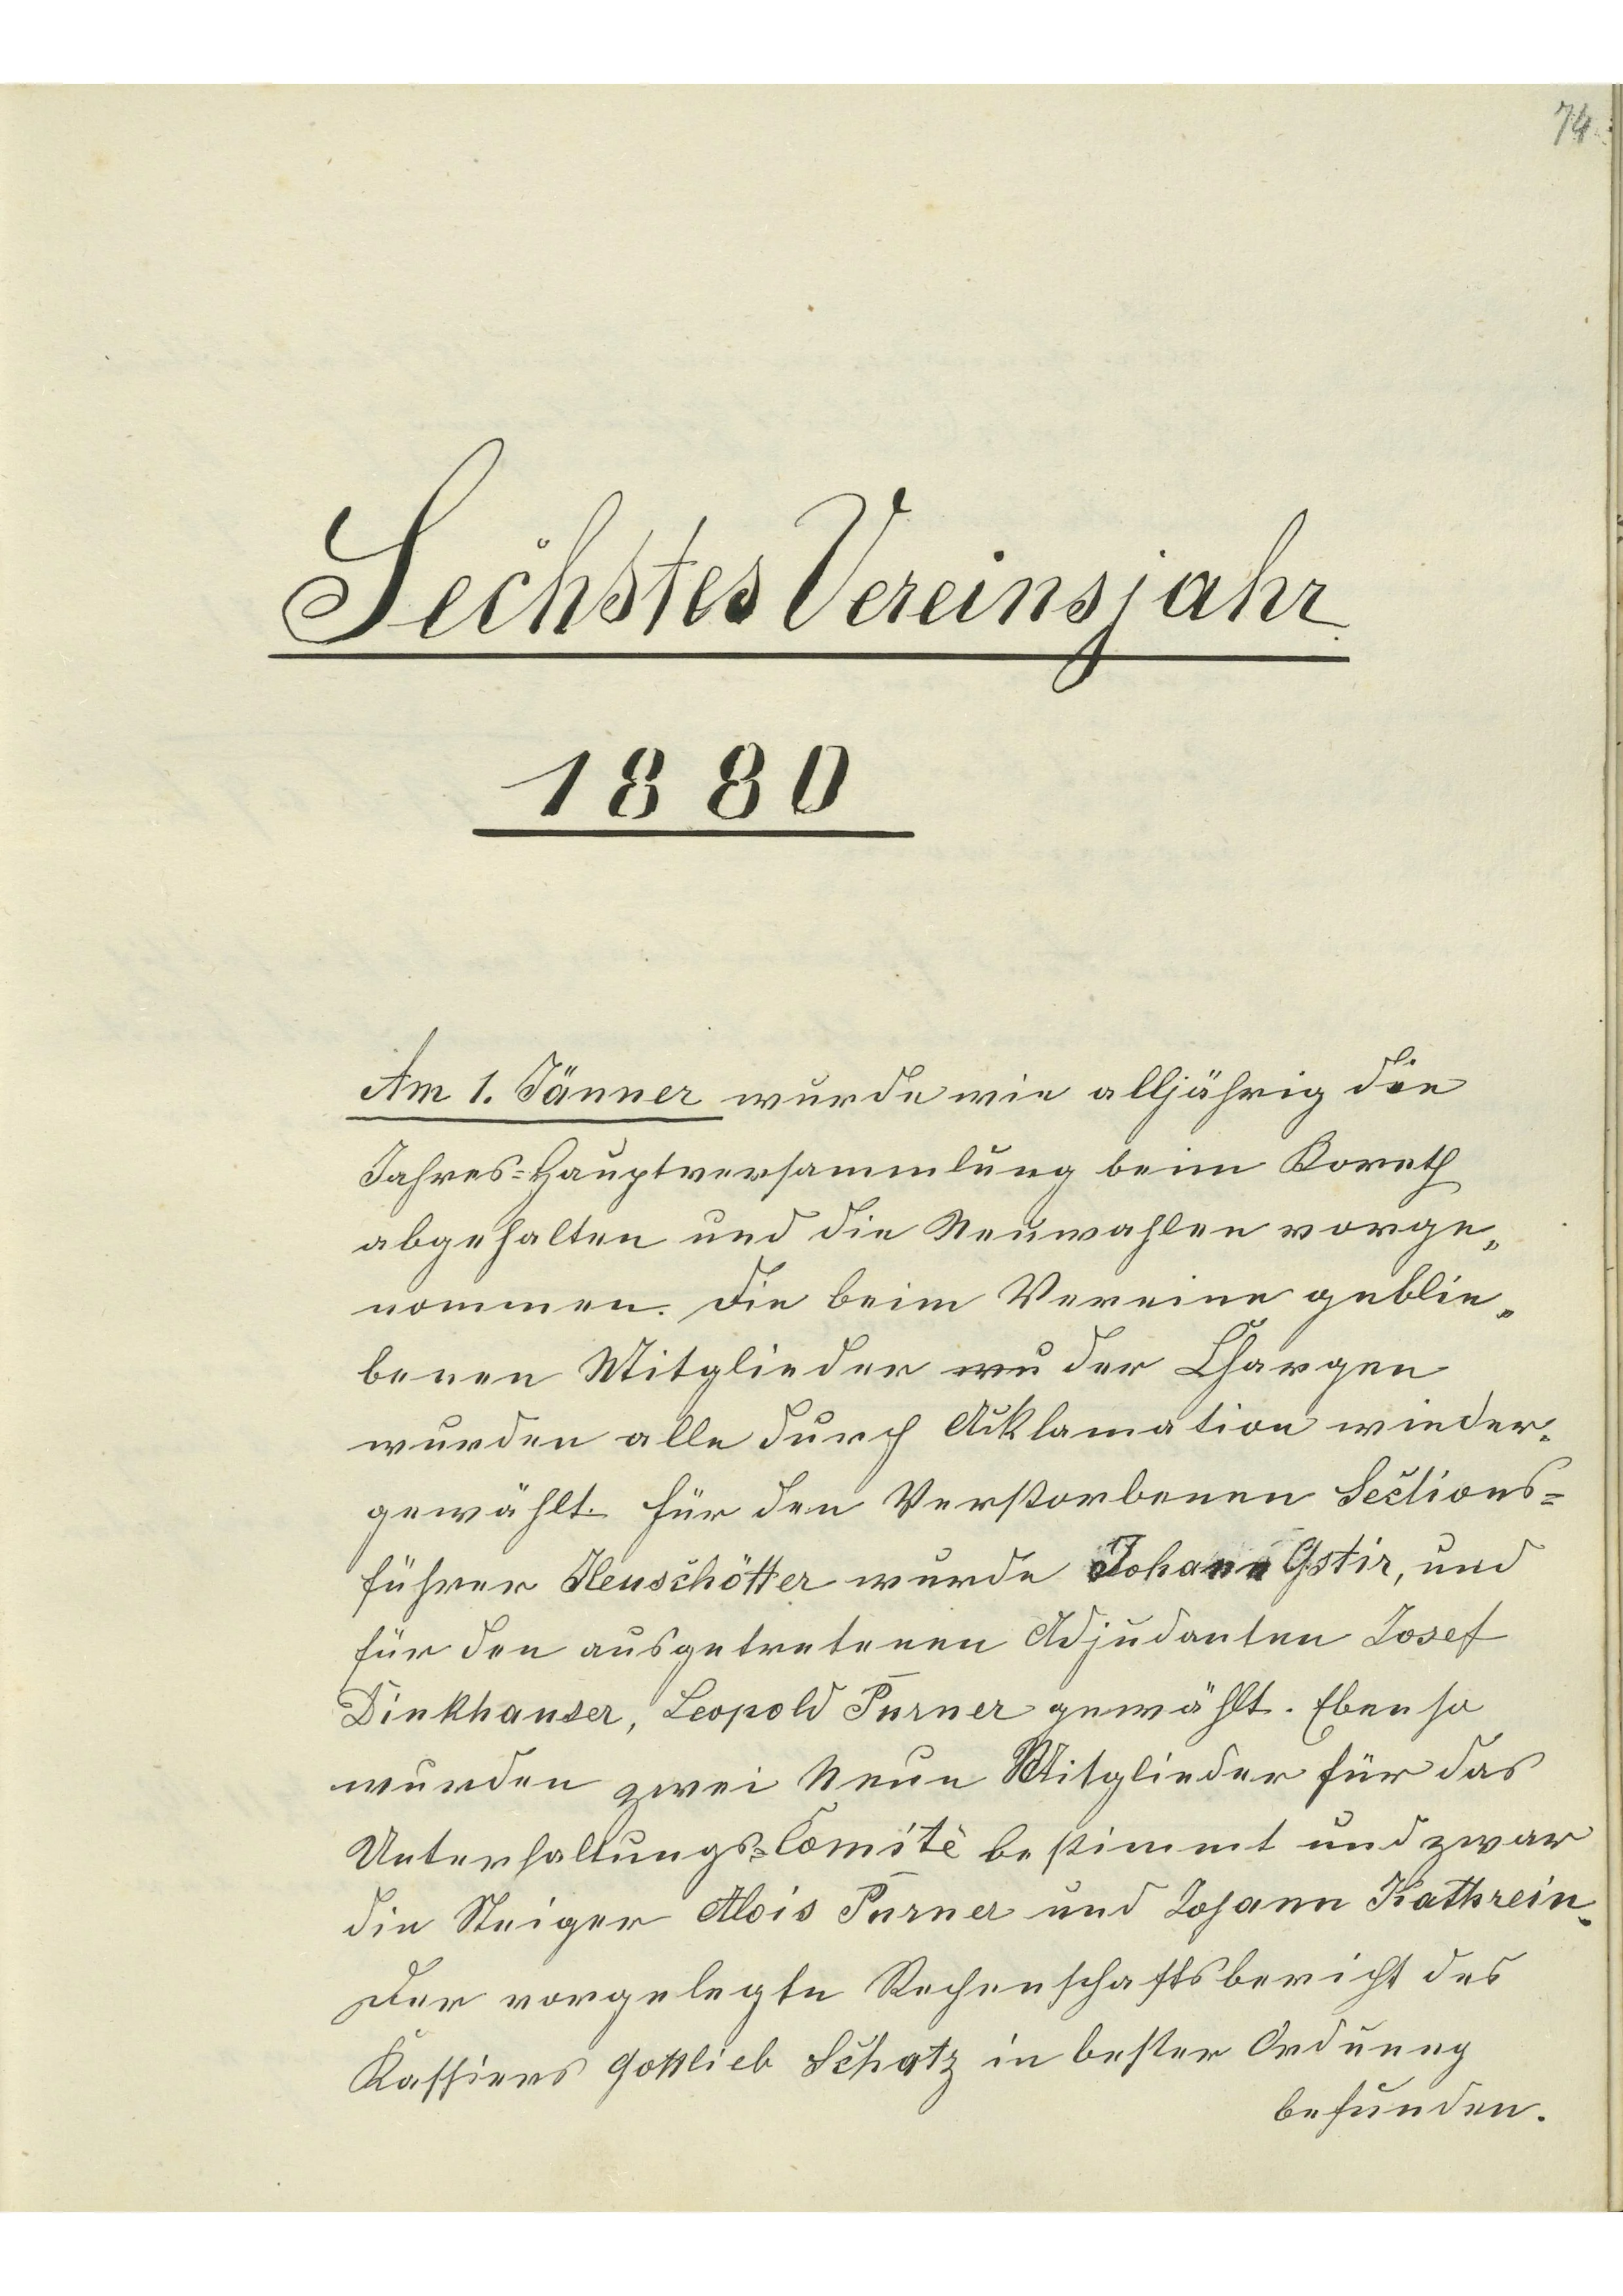 74.
Sechstes Vereinsjahr
1880
Am 1. Jänner wurde wie alljährig die
Jahres=Hauptversammlung beim Koreth
abgehalten und die Neuwahlen vorge„
nommen. Die beim Vereine geblie„
benen Mitglieder der Chargen
wurden alle durch Acklamation wieder„
gewählt. Für den Verstorbenen Sections=
führer Heuschötter wurde Johann Gstir, und
für den ausgetretenen Adjudanten Josef
Dinkhauser, Leopold Purner gewählt. Ebenso
wurden zwei Neue Mitglieder für das
Unterhaltungs=Comitè bestimmt und zwar
die Steiger Alois Purner und Johann Kathrein.
Der vorgelegte Rechenschaftsbericht des
Kassiers Gottlieb Schatz in bester Ordnung
befunden.